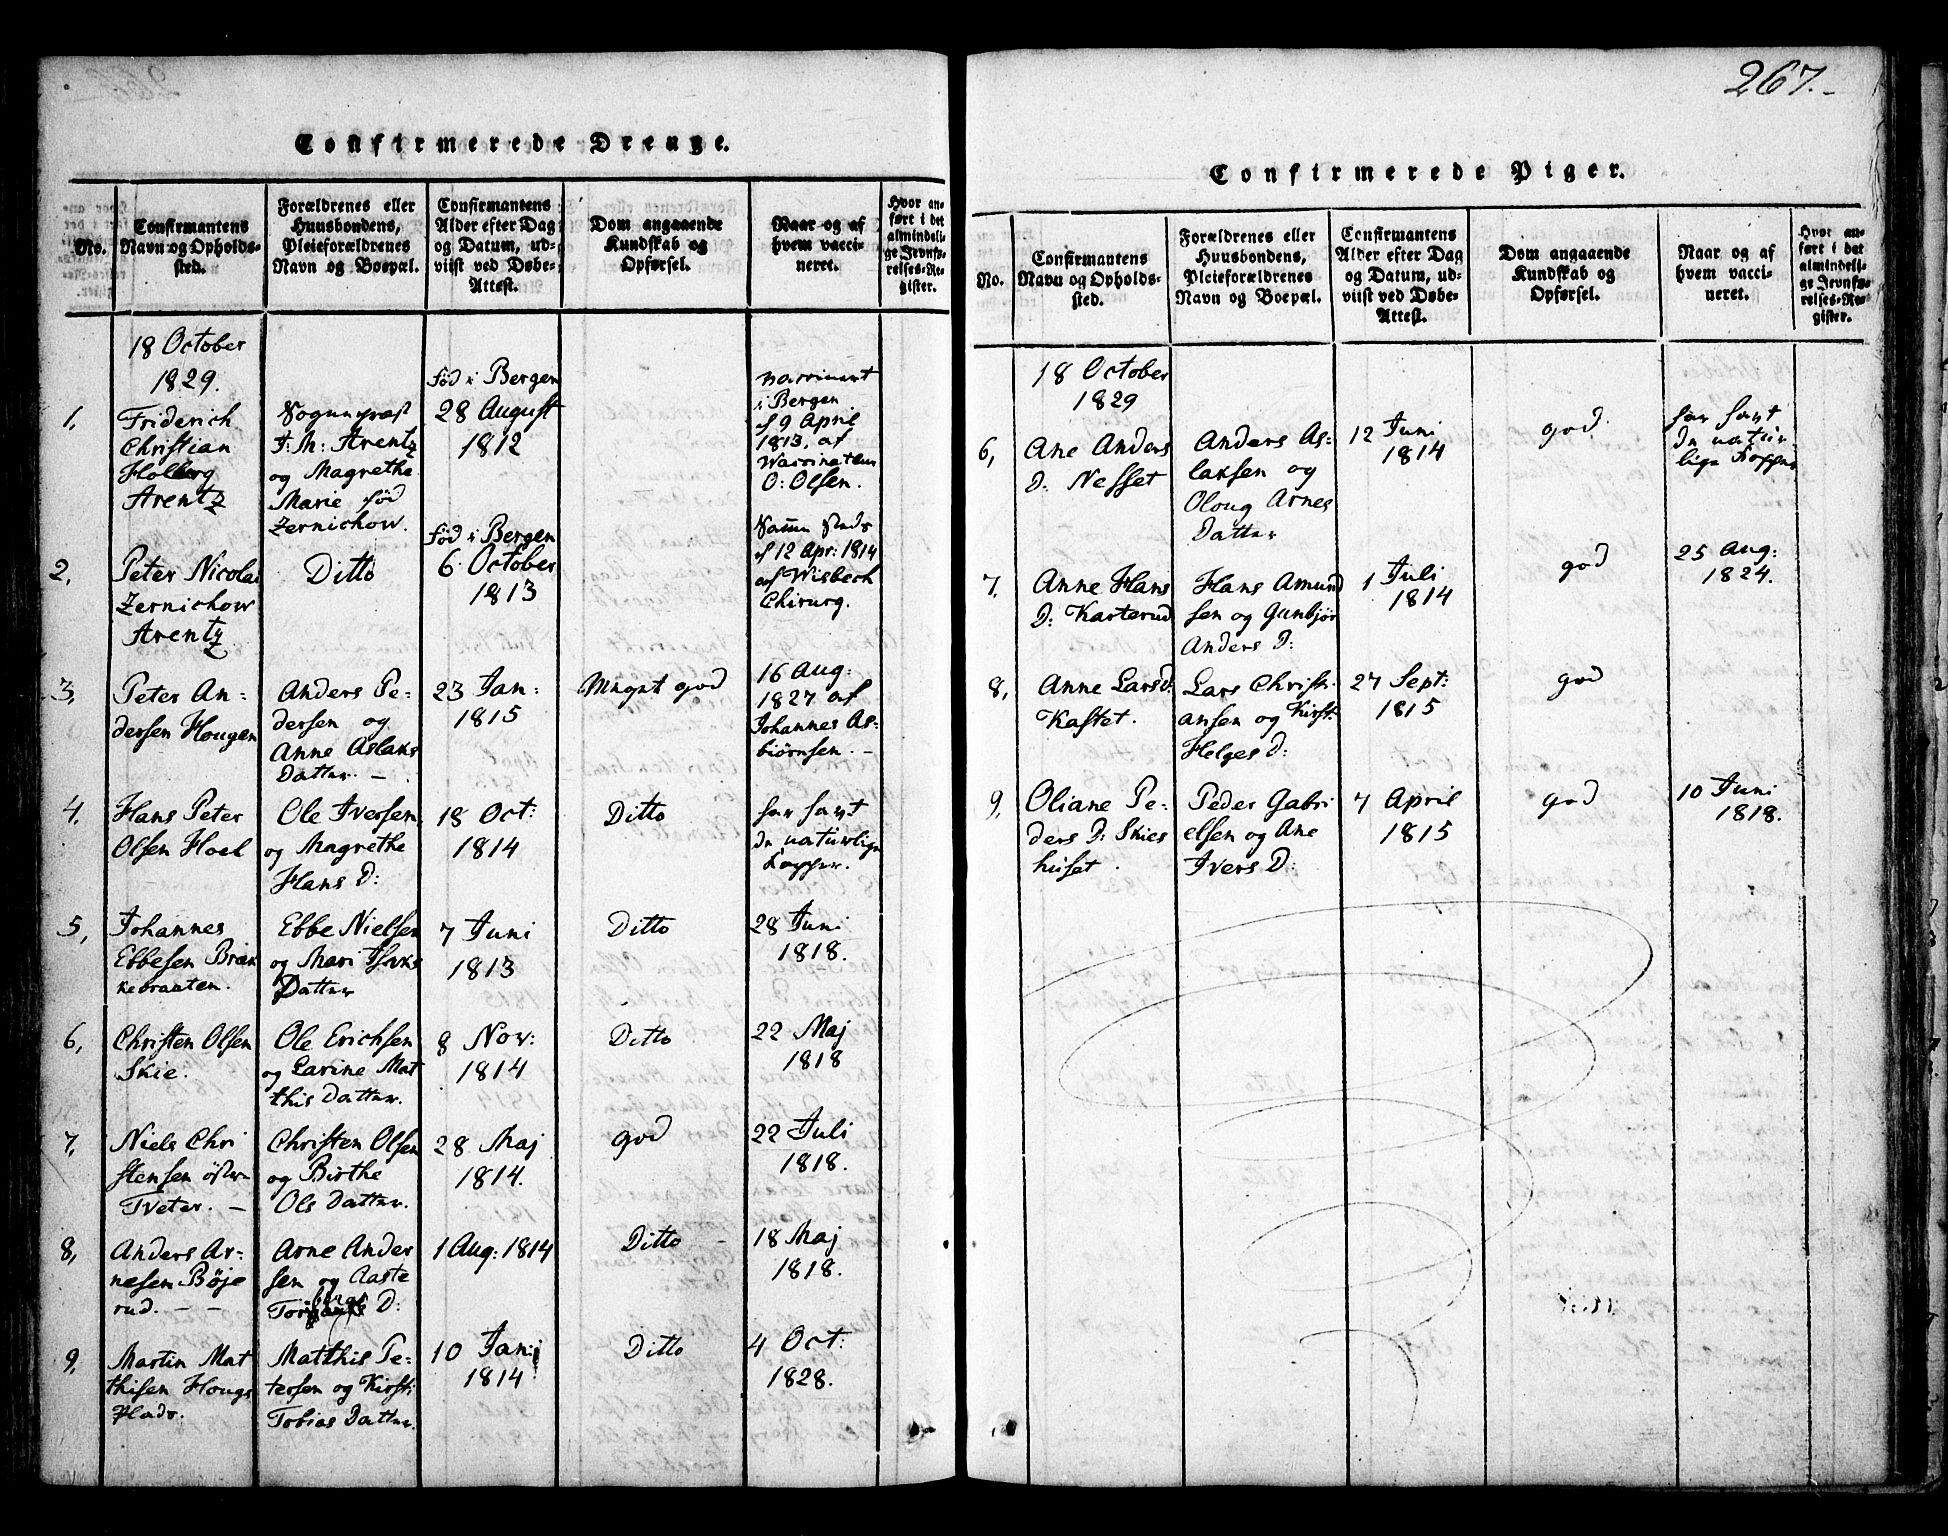 267.-
Confirmerede Drenge.
No.
Confirmantens
Navn og Opholds-
sted.
Forældrenes eller
Huusbondens,
Pleieforældrenes
Navn og Boepæl.
Confirmantens
Alder efter Dag
og Datum, ud-
viist ved Døbe-
Attest.
Dom angaaende
Kundskab og
Opførsel.
Naar og af
hvem vacci-
neret.
Hvor an-
ført i det
almindeli-
ge Jevnfø-
relses-Re-
gister.
18 October
1829.
1.
Friderich
Christian
Holberg
Arentz
Sognepræst
F: M: Arentz
og Magrethe
Marie fød
Zernichow.
fød i Bergen
28 August
1812
vaccineret
i Bergen
d 9 April
1813, af
O: Olsen.
2,
Peter Nicolai
Zernichow
Arentz
Ditto
fød i Bergen
6 October
1813
Samme Steds
d 12 Apr: 1814
af Wisbech
Chirurg.
3,
Peter An-
dersen Hougen
Anders Pe-
dersen og
Anne Aslaks
Datter. -
23 Jan:
1815
Meget god
16 Aug:
1827 af
Johannes As-
biørnsen. -
4.
Hans Peter
Olsen Hoel
Ole Iversen
og Magrethe
Hans D:
18 Oct:
1814
Ditto
har havt
de naturlige
Kopper.
5,
Johannes
Ebbesen Bræk
kebraaten.
Ebbe Nielsen
og Mari Isaks
Datter
7 Juni
1813
Ditto
28 Juni
1818.
6,
Christen Olsen
Skie.
Ole Erichsen
og Larine Mat
this Datter.
8 Nov:
1814
Ditto
22 Maj
1818
7,
Niels Chri
stensen øster
Tveter. -
Christen Olsen
og Birthe
Ols Datter.
28 Maj
1814.
god
22 Juli
1818.
8,
Anders Ar-
nesen Bøje
rud. - -
Arne Ander
sen og Aaste
D:
1 Aug: 1814
Ditto
18 Maj
1818.
9,
Martin Mat
thisen Hougs
Plads.
Matthis Pe-
tersen og Kirsti
Tobias Datter.
10 Jan:
1814
Ditto
4 Oct:
1828.
Confirmerede Piger.
No.
Confirmantens
Navn og Opholds-
sted.
Forældrenes eller
Huusbondens,
Pleieforældrenes
Navn og Boepæl.
Confirmantens
Alder efter Dag
og Datum, ud-
viist ved Døbe-
Attest.
Dom angaaende
Kundskab og
Opførsel.
Naar og af
hvem vacci-
neret.
Hvor an-
ført i det
almindeli-
ge Jevnfø-
relses-Re-
gister.
18 October
1829
6,
Ane Anders
D: Nesset
Anders As-
laksen og
Oloug Arnes
Datter
12 Juni
1814
god
har havt
de natur-
lige Kopper
7.
Anne Hans
D: Karterud
Hans Amund
sen og Gunbjør
Anders D:
1 Juli
1814
god
25 Aug:
1824.
8,
Anne Lars D:
Kastet.
Lars Christi-
ansen og Kirst:
Helges D:
27 Sept:
1815
god
9,
Oliane Pe-
ders D: Skies
huset.
Peder Gabri
elsen og Ane
Ivers D:
7 April
1815
god
10 Juni
1818.